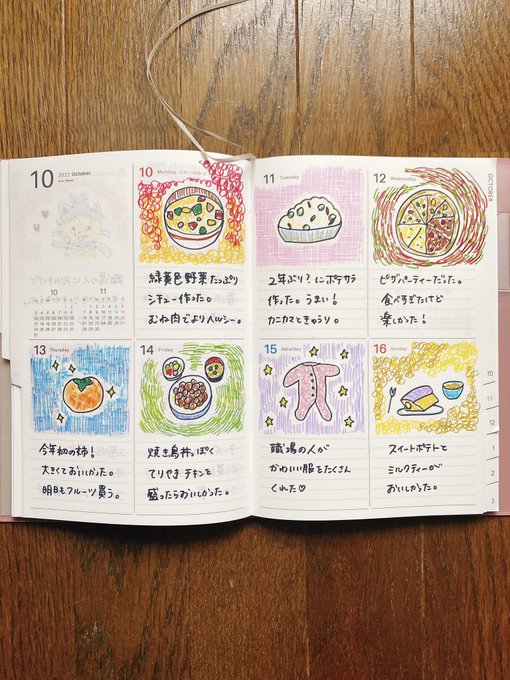 10
2022 October
OCTOBER
10 Monday スポーツの日
緑黄色野菜たっぷり
シチュー作った。
むね肉でよりヘルシー。
11 Tuesday
2年ぶり?にポテサラ
作った。うまい!
カニカマときゅうり。
12 Wednesday
ピザパーティーだった。
食べすぎたけど
楽しかった!
10
11
13 Thursday
今年初の柿!
大きくておいしかった。
明日もフルーツ買う。
14 Friday
焼き鳥丼っぽく
てりやきチキンを
盛ったらおいしかった。
15 Saturday
職場の人が
かわいい服をたくさん
くれた♡
16 Sunday
スイートポテトと
ミルクティーが
おいしかった。
10
11
12
1
2
3